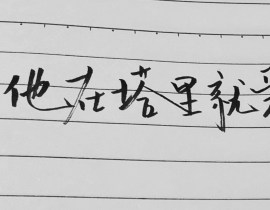 他在塔里就